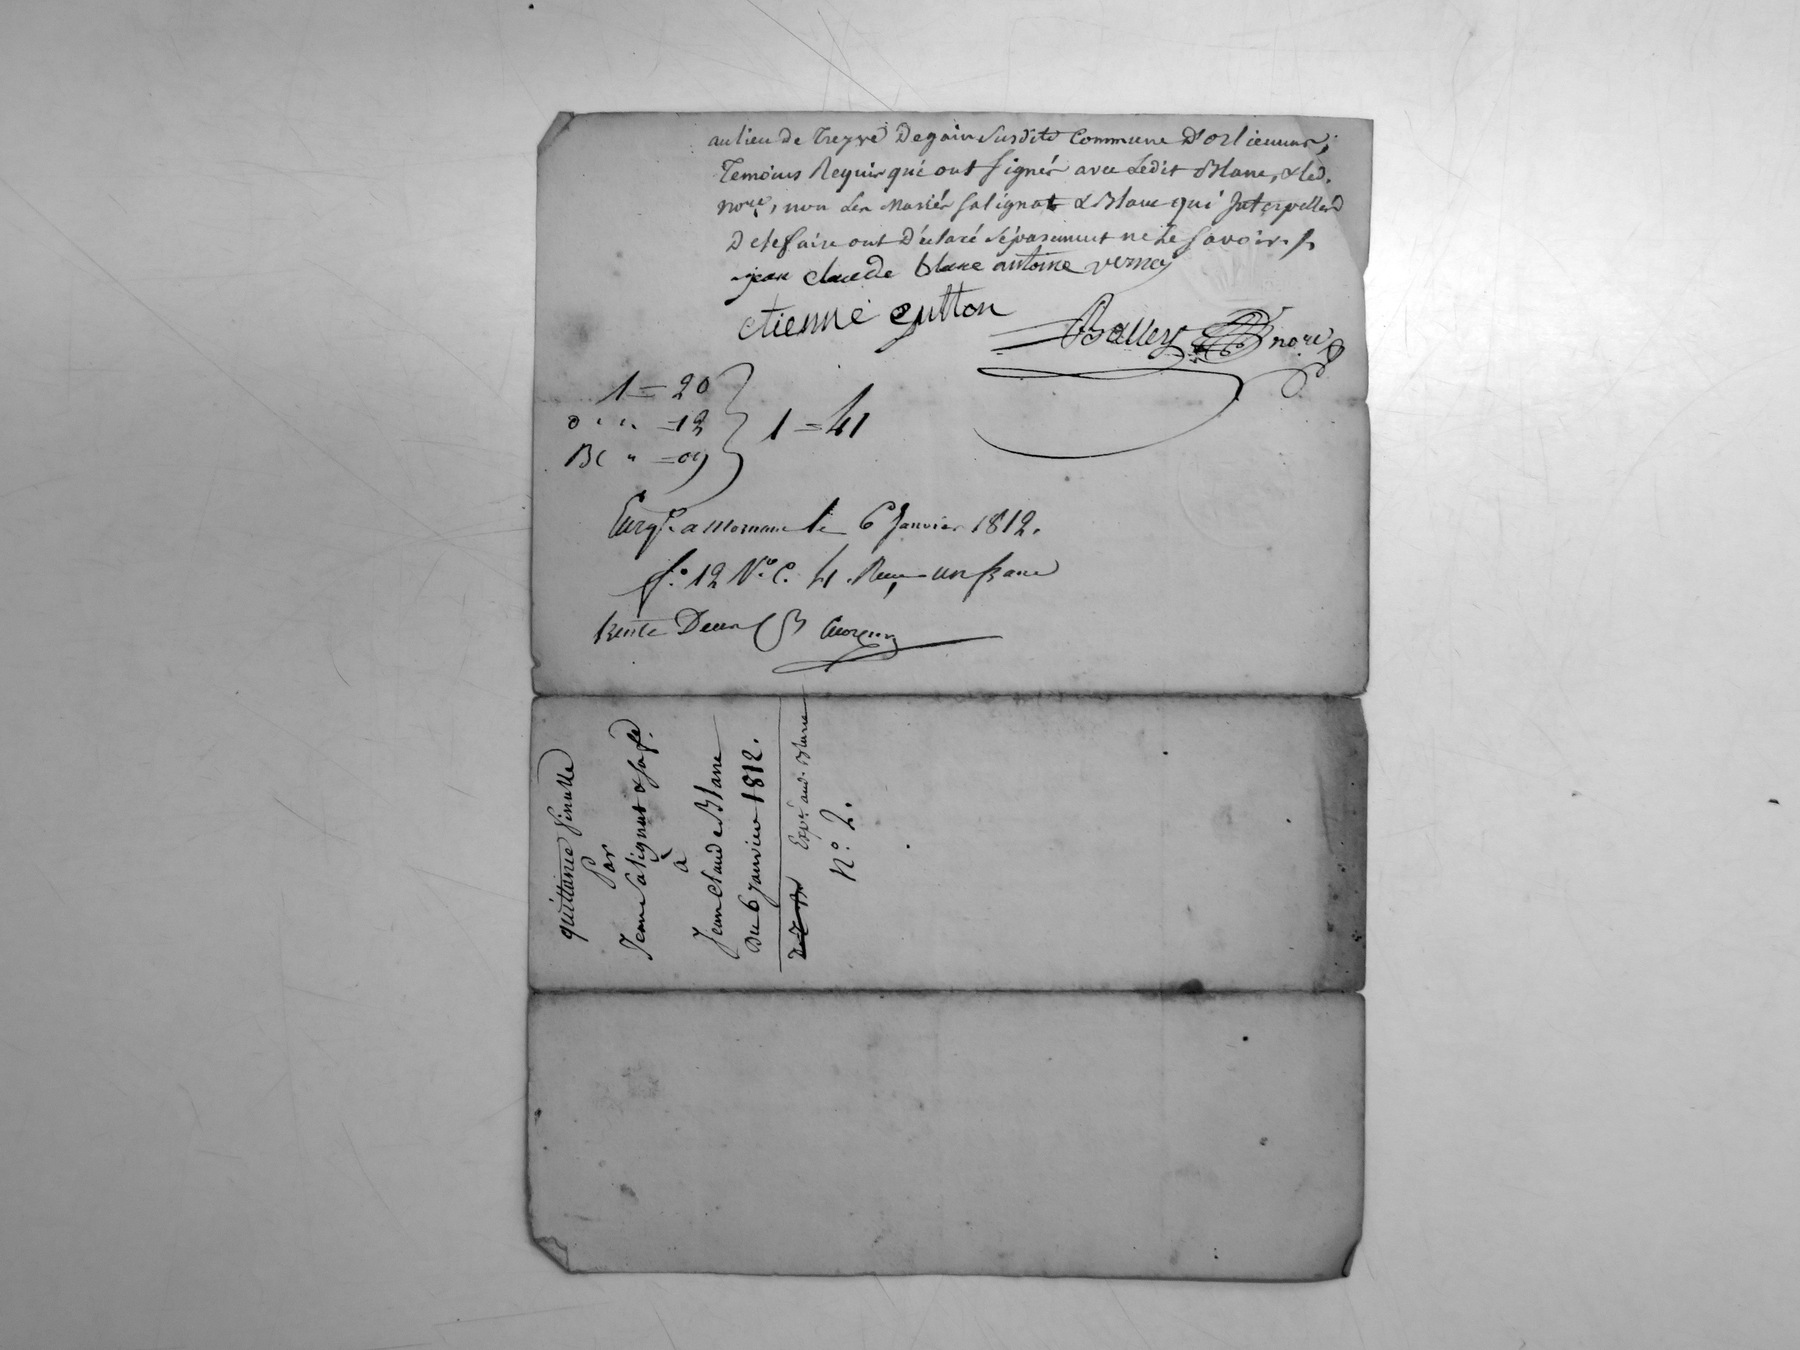 au lieu de Treyve Degain susdite Commune D'orlienune;
Temoins Requis qui ont signés avec Ledit Blanc, & led.
nore, non Les Mariés salignat & Blanc qui Interpellés
De le faire ont Déclaré séparement ne Le savoir.
jean claude blanc antoine verney
etienne gutton
Balley nore
1 = 20
D " " = 12
BC " = 09
1 = 41
Enrgt. a Mornant le 6 Janvier 1812.
f.° 12 V.° C. 4. Reçu un franc
trente Deux C
quittance finalle
Par
Jenne salignat & sa fe.
à
Jean Claude Blanc
Du 6 Janvier 1812.
Expé aud. Blanc
N.° 2.